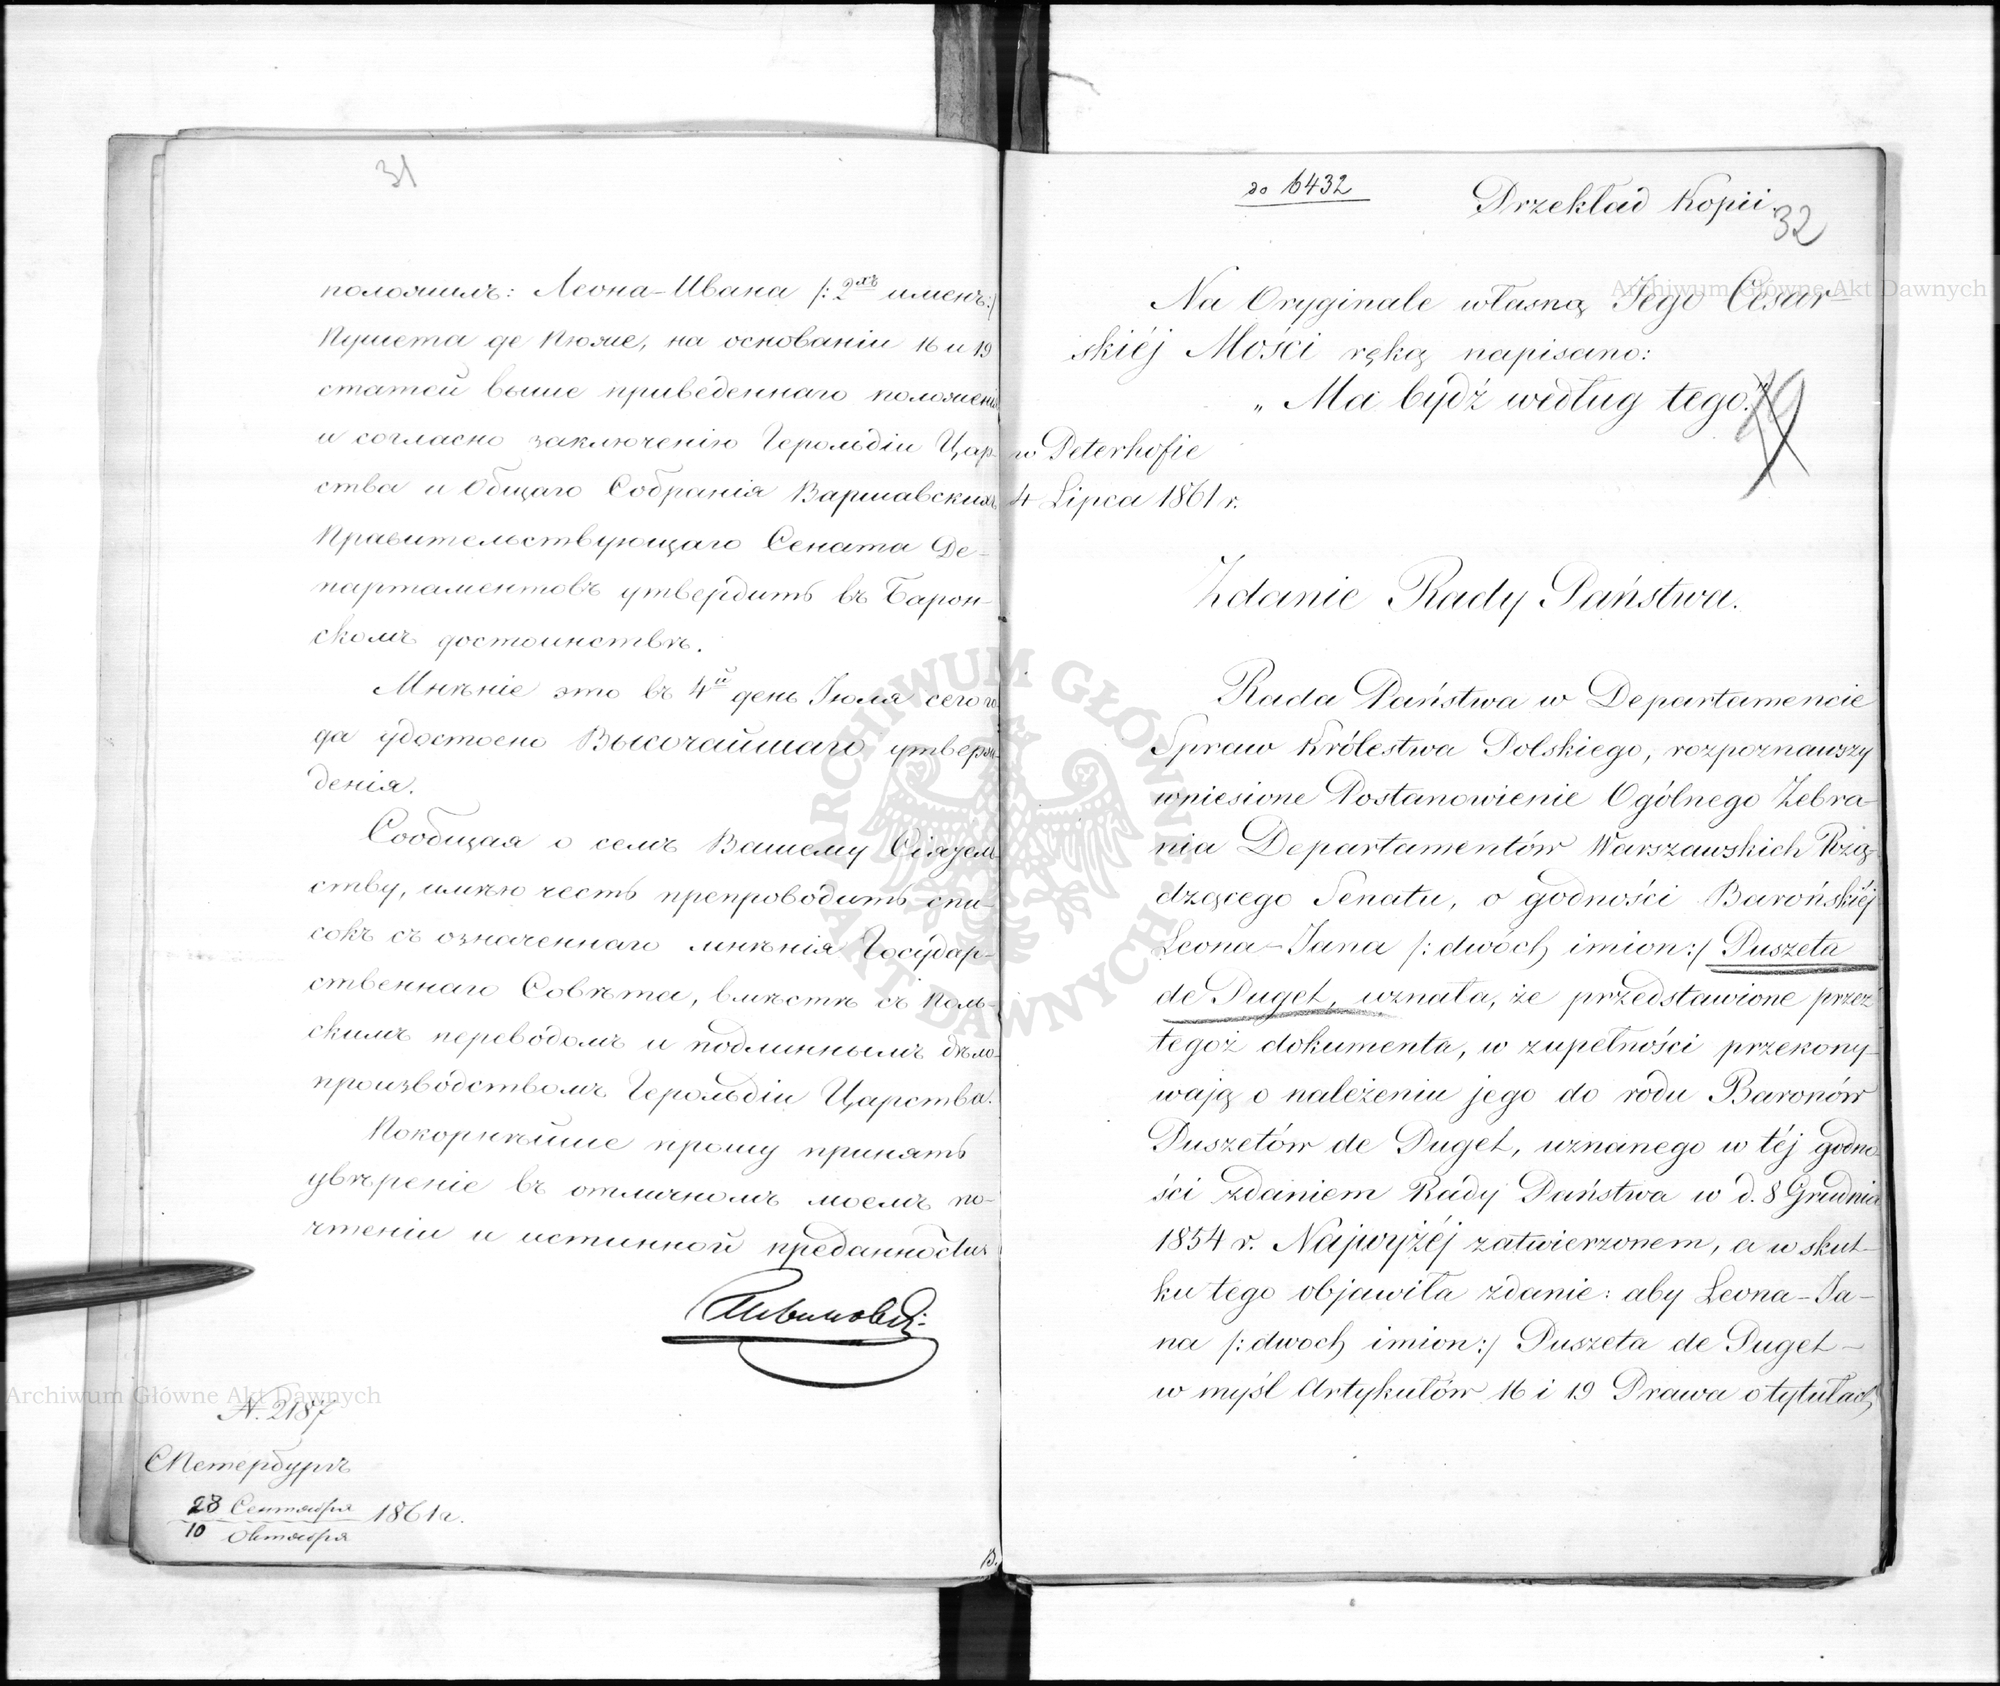 31
положилъ: Леона-Ивана /: 2хъ именъ:/
Пушета де Пюже, на основаніи 16 и 19
статей выше приведеннаго положенія
и согласно заключенію Герольдіи Цар-
ства и Общаго Собранія Варшавскихъ
Правительствующаго Сената Де-
партаментовъ утвердить въ Барон-
скомъ достоинствѣ.
Мнѣніе это въ 4й день Іюля сего го
да удостоено Высочайшаго утверж-
денія.
Сообщая о семъ Вашему Сіятель
ству, имѣю честь препроводить спи-
сокъ съ означеннаго мнѣнія Государ-
ственнаго Совѣта, вмѣстѣ съ Поль-
скимъ переводомъ и подлиннымъ дѣло-
производствомъ Герольдіи Царства.
Покорнѣйше прошу принять
увѣреніе въ отличномъ моемъ по-
чтеніи и истинной преданности
N. 2187
СПетербургъ
28 Сентября
10 Октября
1861 г.
до 6432
Przekład Kopii
32
Na Oryginale własną Jego Cesar-
skiéj Mości ręką napisano:
„Ma bydź według tego."
w Peterhofie
4 Lipca 1861 r.
Zdanie Rady Państwa.
Rada Państwa w Departamencie
Spraw Królestwa Polskiego, rozpoznawszy
wniesione Postanowienie Ogólnego Zebra-
nia Departamentów Warszawskich Rzą-
dzącego Senatu, o godności Barońskiéj
Leona-Jana /: dwóch imion:/ Puszeta
de Puget, uznała, że przedstawione przez
tegoż dokumenta, w zupełności przekony-
wają o należeniu jego do rodu Baronów
Puszetów de Puget, uznanego w téj godno-
ści zdaniem Rady Państwa w d. 8 Grudnia
1854 r. Najwyżéj zatwierzonem, a w skut-
ku tego objawiła zdanie: aby Leona-Ja-
na /: dwoch imion:/ Puszeta de Puget -
w myśl Artykułów 16 i 19 Prawa o tytułach
Archiwum Główne Akt Dawnych
Archiwum Główne Akt Dawnych
ARCHIWUM GŁÓWNE AKT DAWNYCH